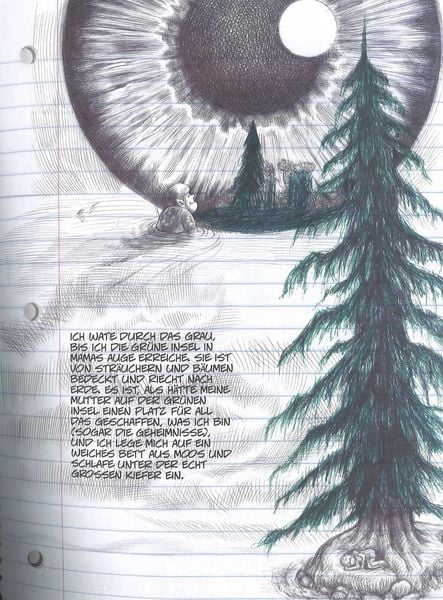 ICH WATE DURCH DAS GRAU,
BIS ICH DIE GRÜNE INSEL IN
MAMAS AUGE ERREICHE. SIE IST
VON STRÄUCHERN UND BÄUMEN
BEDECKT UND RIECHT NACH
ERDE. ES IST, ALS HÄTTE MEINE
MUTTER AUF DER GRÜNEN
INSEL EINEN PLATZ FÜR ALL
DAS GESCHAFFEN, WAS ICH BIN
(SOGAR DIE GEHEIMNISSE),
UND ICH LEGE MICH AUF EIN
WEICHES BETT AUS MOOS UND
SCHLAFE UNTER DER ECHT
GROSSEN KIEFER EIN.